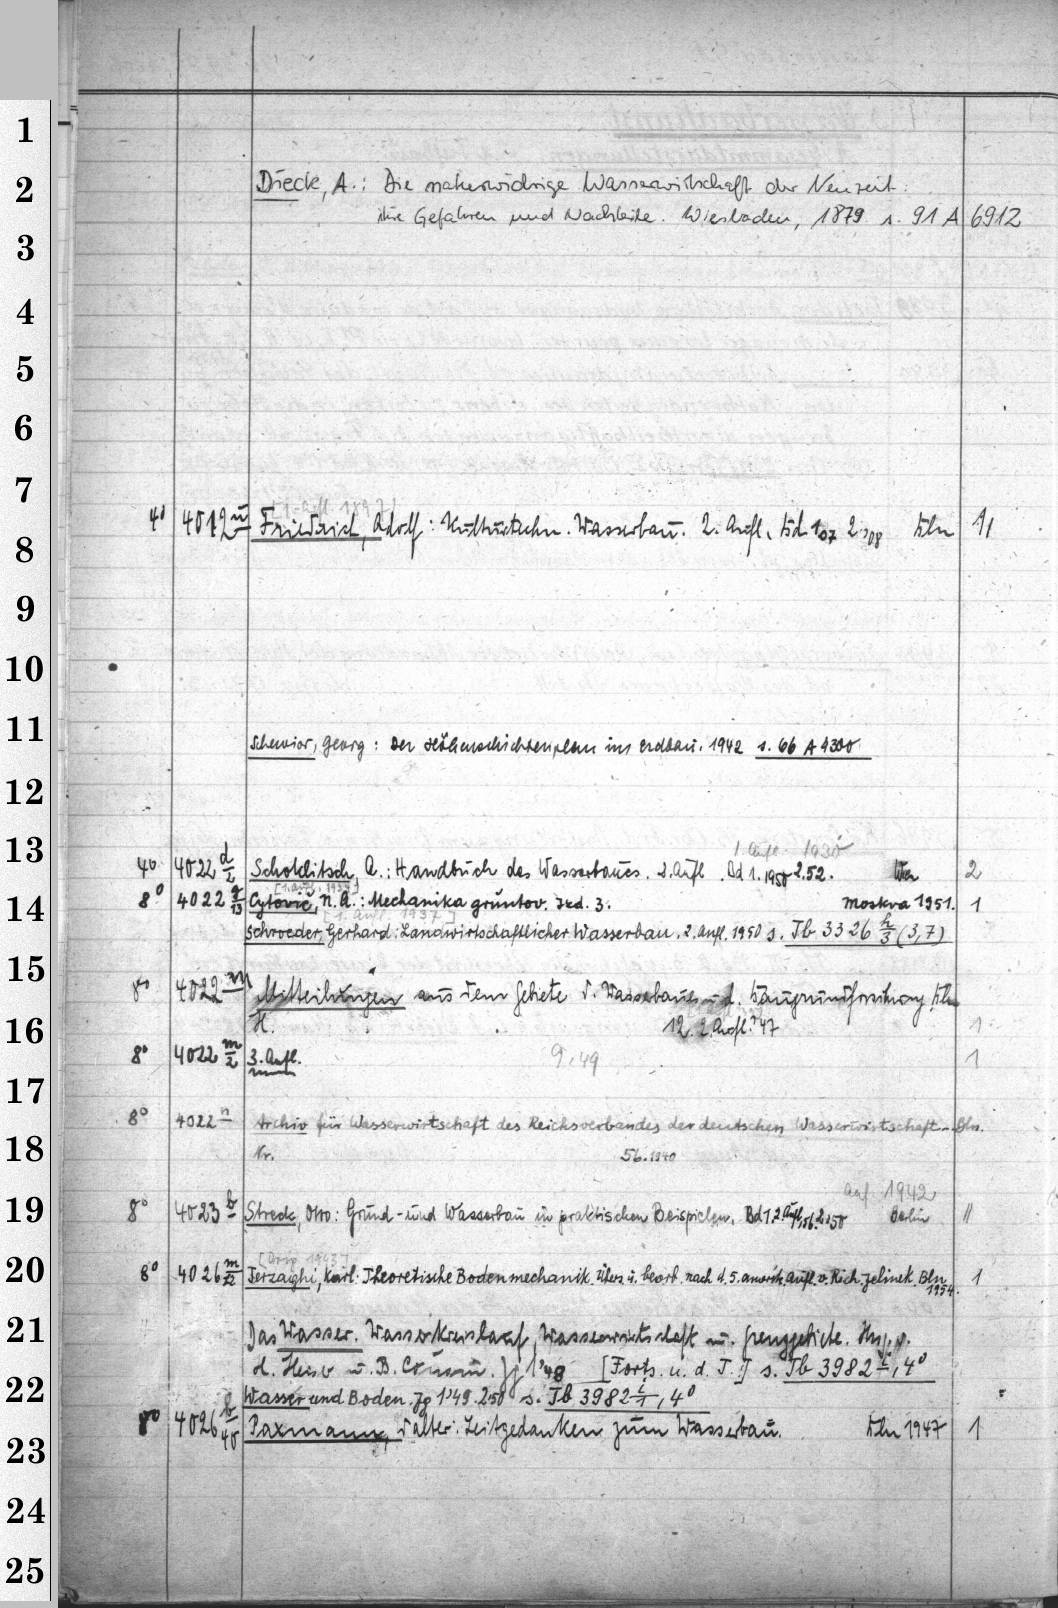 1
2
Dieck, A.: Die naturwidrige Wasserwirtschaft der Neuzeit:
ihre Gefahren und Nachteile. Wiesbaden, 1879 s. 91 A 6912
3
4
5
6
7
[1. Aufl. 1897]
4° 4012 u Friedrich, Adolf: Kulturtechn. Wasserbau. 2. Aufl. Bd. 1.07 2.'08 Bln 11
8
9
10
11
Schewior, Georg: Der Höhenschichtenplan im Erdbau. 1942 s. 66 A 4300
12
13
1. Aufl. 1930
4° 4022 d/2 Schoklitsch, A.: Handbuch des Wasserbaues. 2. Aufl. Bd 1. 1950 2.52. Wien 2
[1. Aufl. 1934]
14
8° 4022 g/13 Cytovič, N. A.: Mechanika gruntov. Izd. 3. Moskva 1951. 1
[1. Aufl. 1937]
Schroeder, Gerhard: Landwirtschaftlicher Wasserbau. 2. Aufl. 1950 s. Tb 3326 h/3 (3,7)
15
8° 4022 m Mitteilungen aus dem Gebiete d. Wasserbaues u. d. Baugrundforschung Bln
16
H. 12. 2. Aufl. '47 1
8° 4022 m/2 3. Aufl. 9,49 1
17
8° 4022 n Archiv für Wasserwirtschaft des Reichsverbandes der deutschen Wasserwirtschaft. Bln.
18
Nr. 56.1940
Aufl. 1942
19
8° 4023 b Streck, Otto: Grund- und Wasserbau in praktischen Beispielen. Bd 1. 2. Aufl. 2.50 Berlin 11
20
8° 4026 m/12 Terzaghi, Karl: Theoretische Bodenmechanik. Übers. u. bearb. nach d. 5. amerik. Aufl. v. Rich. Jelinek. Bln 1954. 1
21
Das Wasser. Wasserkreislauf, Wasserwirtschaft u. Grenzgebiete. Hrsg. v.
d. u. B. Jg 1'48 [Forts. u. d. T.:] s. Tb 3982 i, 4°
22
Wasser und Boden. Jg 1'49. 2.50 s. Tb 3982 i/1, 4°
8° 4026 b/40 Paxmann, Walter: Leitgedanken zum Wasserbau. Bln 1947 1
23
24
25